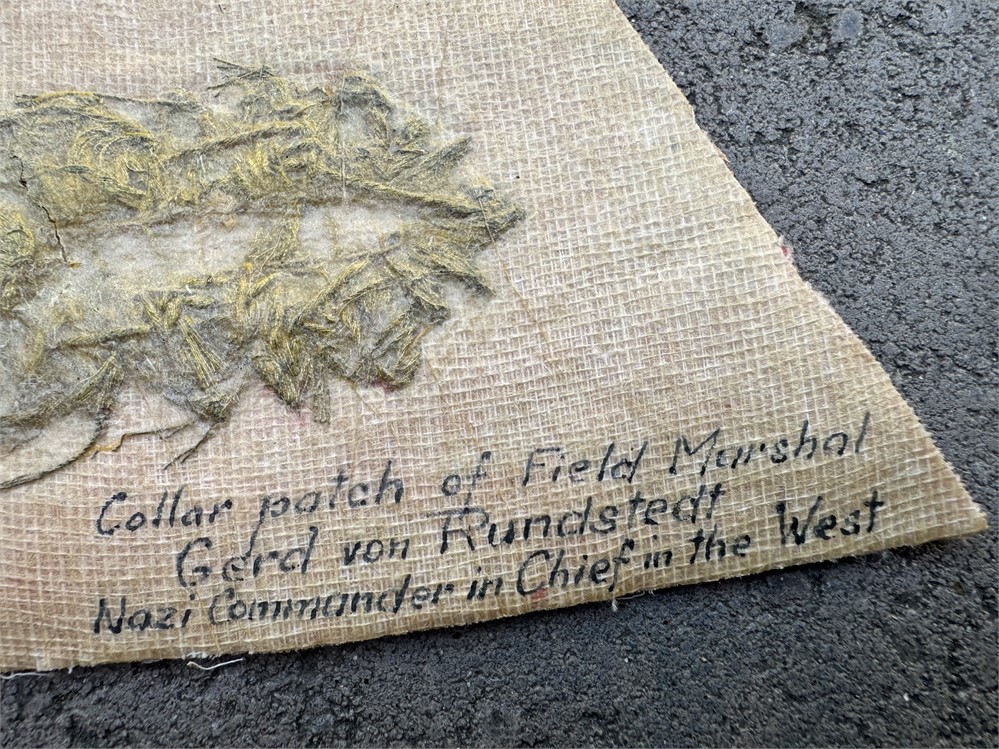 Collar patch of Field Marshal
Gerd von Rundstedt
Nazi Commander in Chief in the West